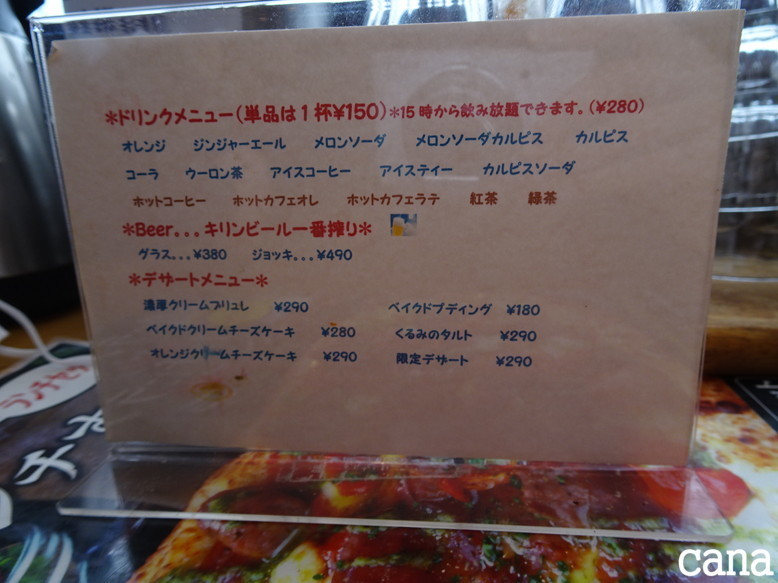 *ドリンクメニュー(単品は1杯¥150)*15時から飲み放題できます。(¥280)
オレンジ ジンジャーエール メロンソーダ メロンソーダカルピス カルピス
コーラ ウーロン茶 アイスコーヒー アイスティー カルピスソーダ
ホットコーヒー ホットカフェオレ ホットカフェラテ 紅茶 緑茶
*Beer...キリンビール一番搾り*
グラス...¥380 ジョッキ...¥490
*デザートメニュー*
濃厚クリームブリュレ ¥290 ベイクドプディング ¥180
ベイクドクリームチーズケーキ ¥280 くるみのタルト ¥290
オレンジクリームチーズケーキ ¥290 限定デザート ¥290
ランチセッ
cana